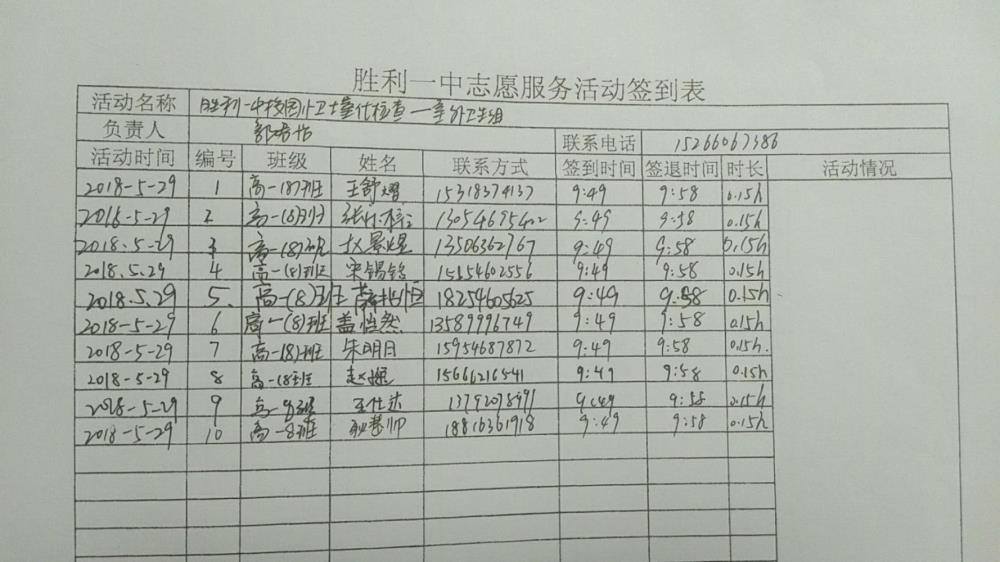 胜利一中志愿服务活动签到表
活动名称 胜利一中校园小卫士量化检查一室外卫生组
负责人 联系电话 15266067386
活动时间 编号 班级 姓名 联系方式 签到时间 签退时间 时长 活动情况
2018-5-29 1 高一(8)班 15318374137 9:49 9:58 0.15h
2018-5-29 2 高一(8)班 9:49 9:58 0.15h
2018.5-29 3 高一(8)班 13506362767 9:49 9:58 0.15h
2018.5.29 4 高一(8)班 宋锡铭 15154602556 9:49 9:58 0.15h
2018.5.29 5. 高一(8)班 18254605625 9:49 9:58 0.15h
2018-5-29 6 高一(8)班 盖怡然 13589996749 9:49 9:58 0.15h
2018-5-29 7 高一(8)班 朱明日 15954687872 9:49 9:58 0.15h.
2018-5-29 8 高一(8)班 15666216541 9:49 9:58 0.15h
2018-5-29 9 高一8班 王仕杰 13792078991 9:49 9:58 0.15h
2018-5-29 10 高一8班 耿基帅 18816361918 9:49 9:58 0.15h